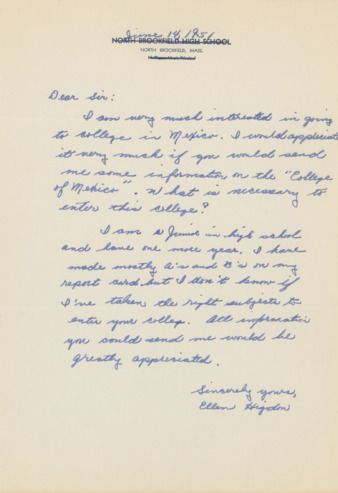 June 14, 1951
NORTH BROOKFIELD HIGH SCHOOL
NORTH BROOKFIELD, MASS.
Dear Sir:
I am very much interested in going
to college in Mexico. I would appreciate
it very much if you would send
me some information on the "College
of Mexico". What is necessary to
enter this college?
I am a Junior in high school
and have one more year. I have
made mostly A's and B's on my
report card but I don't know if
I've taken the right subjects to
enter your college. All information
you could send me would be
greatly appreciated.
Sincerely yours,
Ellen Higdon